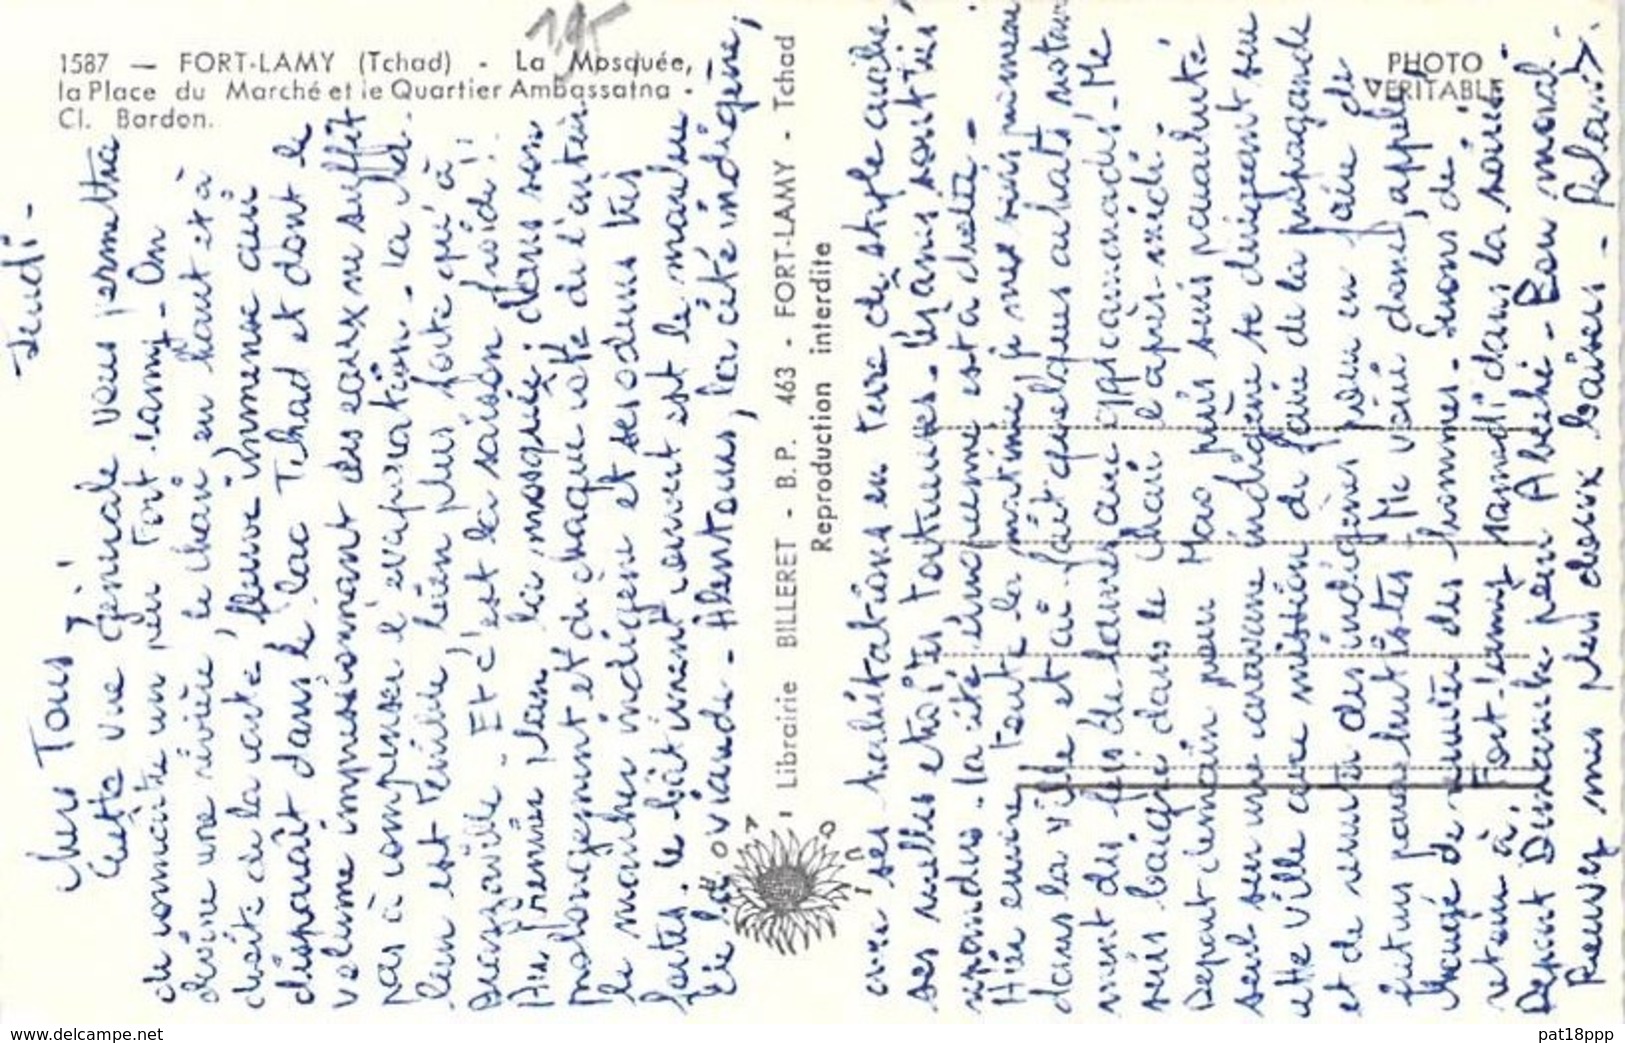 1,95
1587 — FORT-LAMY (Tchad) - La Mosquée,
la Place du Marché et le Quartier Ambassatna -
Cl. Bardon.
PHOTO
VERITABLE
Librairie BILLERET - B.P. 463 - FORT-LAMY - Tchad
Reproduction interdite
Jeudi -
Chers Tous,
Cette vue générale vous permettra
de connaitre un peu Fort Lamy - On
devine une rivière, le Chari en haut et à
droite de la carte, fleuve immense qui
disparaît dans le lac Tchad et dont le
volume impressionnant des eaux ne suffit
pas à compenser l'évaporation - la cha-
leur est terrible, bien plus forte qu'à
Brazzaville. Et c'est la saison froide !!
Au premier plan la mosquée ; dans son
prolongement et de chaque côté de l'artère
le marché indigène et ses odeurs très
fortes. Le bâtiment est le marché
de la viande - Alentours, la cité indigène,
avec ses habitations en terre de style arabe,
ses ruelles étroites tortueuses - les amis sont très
La cité européenne est à droite -
Hier encore toute la matinée je me suis promené
dans la ville et ai fait quelques achats notam
ment des fers de lances - Me
suis baigné dans le Chari l'après-midi -
Départ demain pour Mao puis suis parachuté
seul sur une caravane indigène se dirigeant sur
cette ville avec mission de faire de la propagande
et de réunir des indigènes pour en faire de
futurs parachutistes - Me voici donc, appelé
des hommes - Serons de
retour à Fort-Lamy samedi dans la soirée
Départ Dimanche pour Abéché - Bon moral -
Recevez mes plus doux baisers -
delcampe.net
pat18ppp